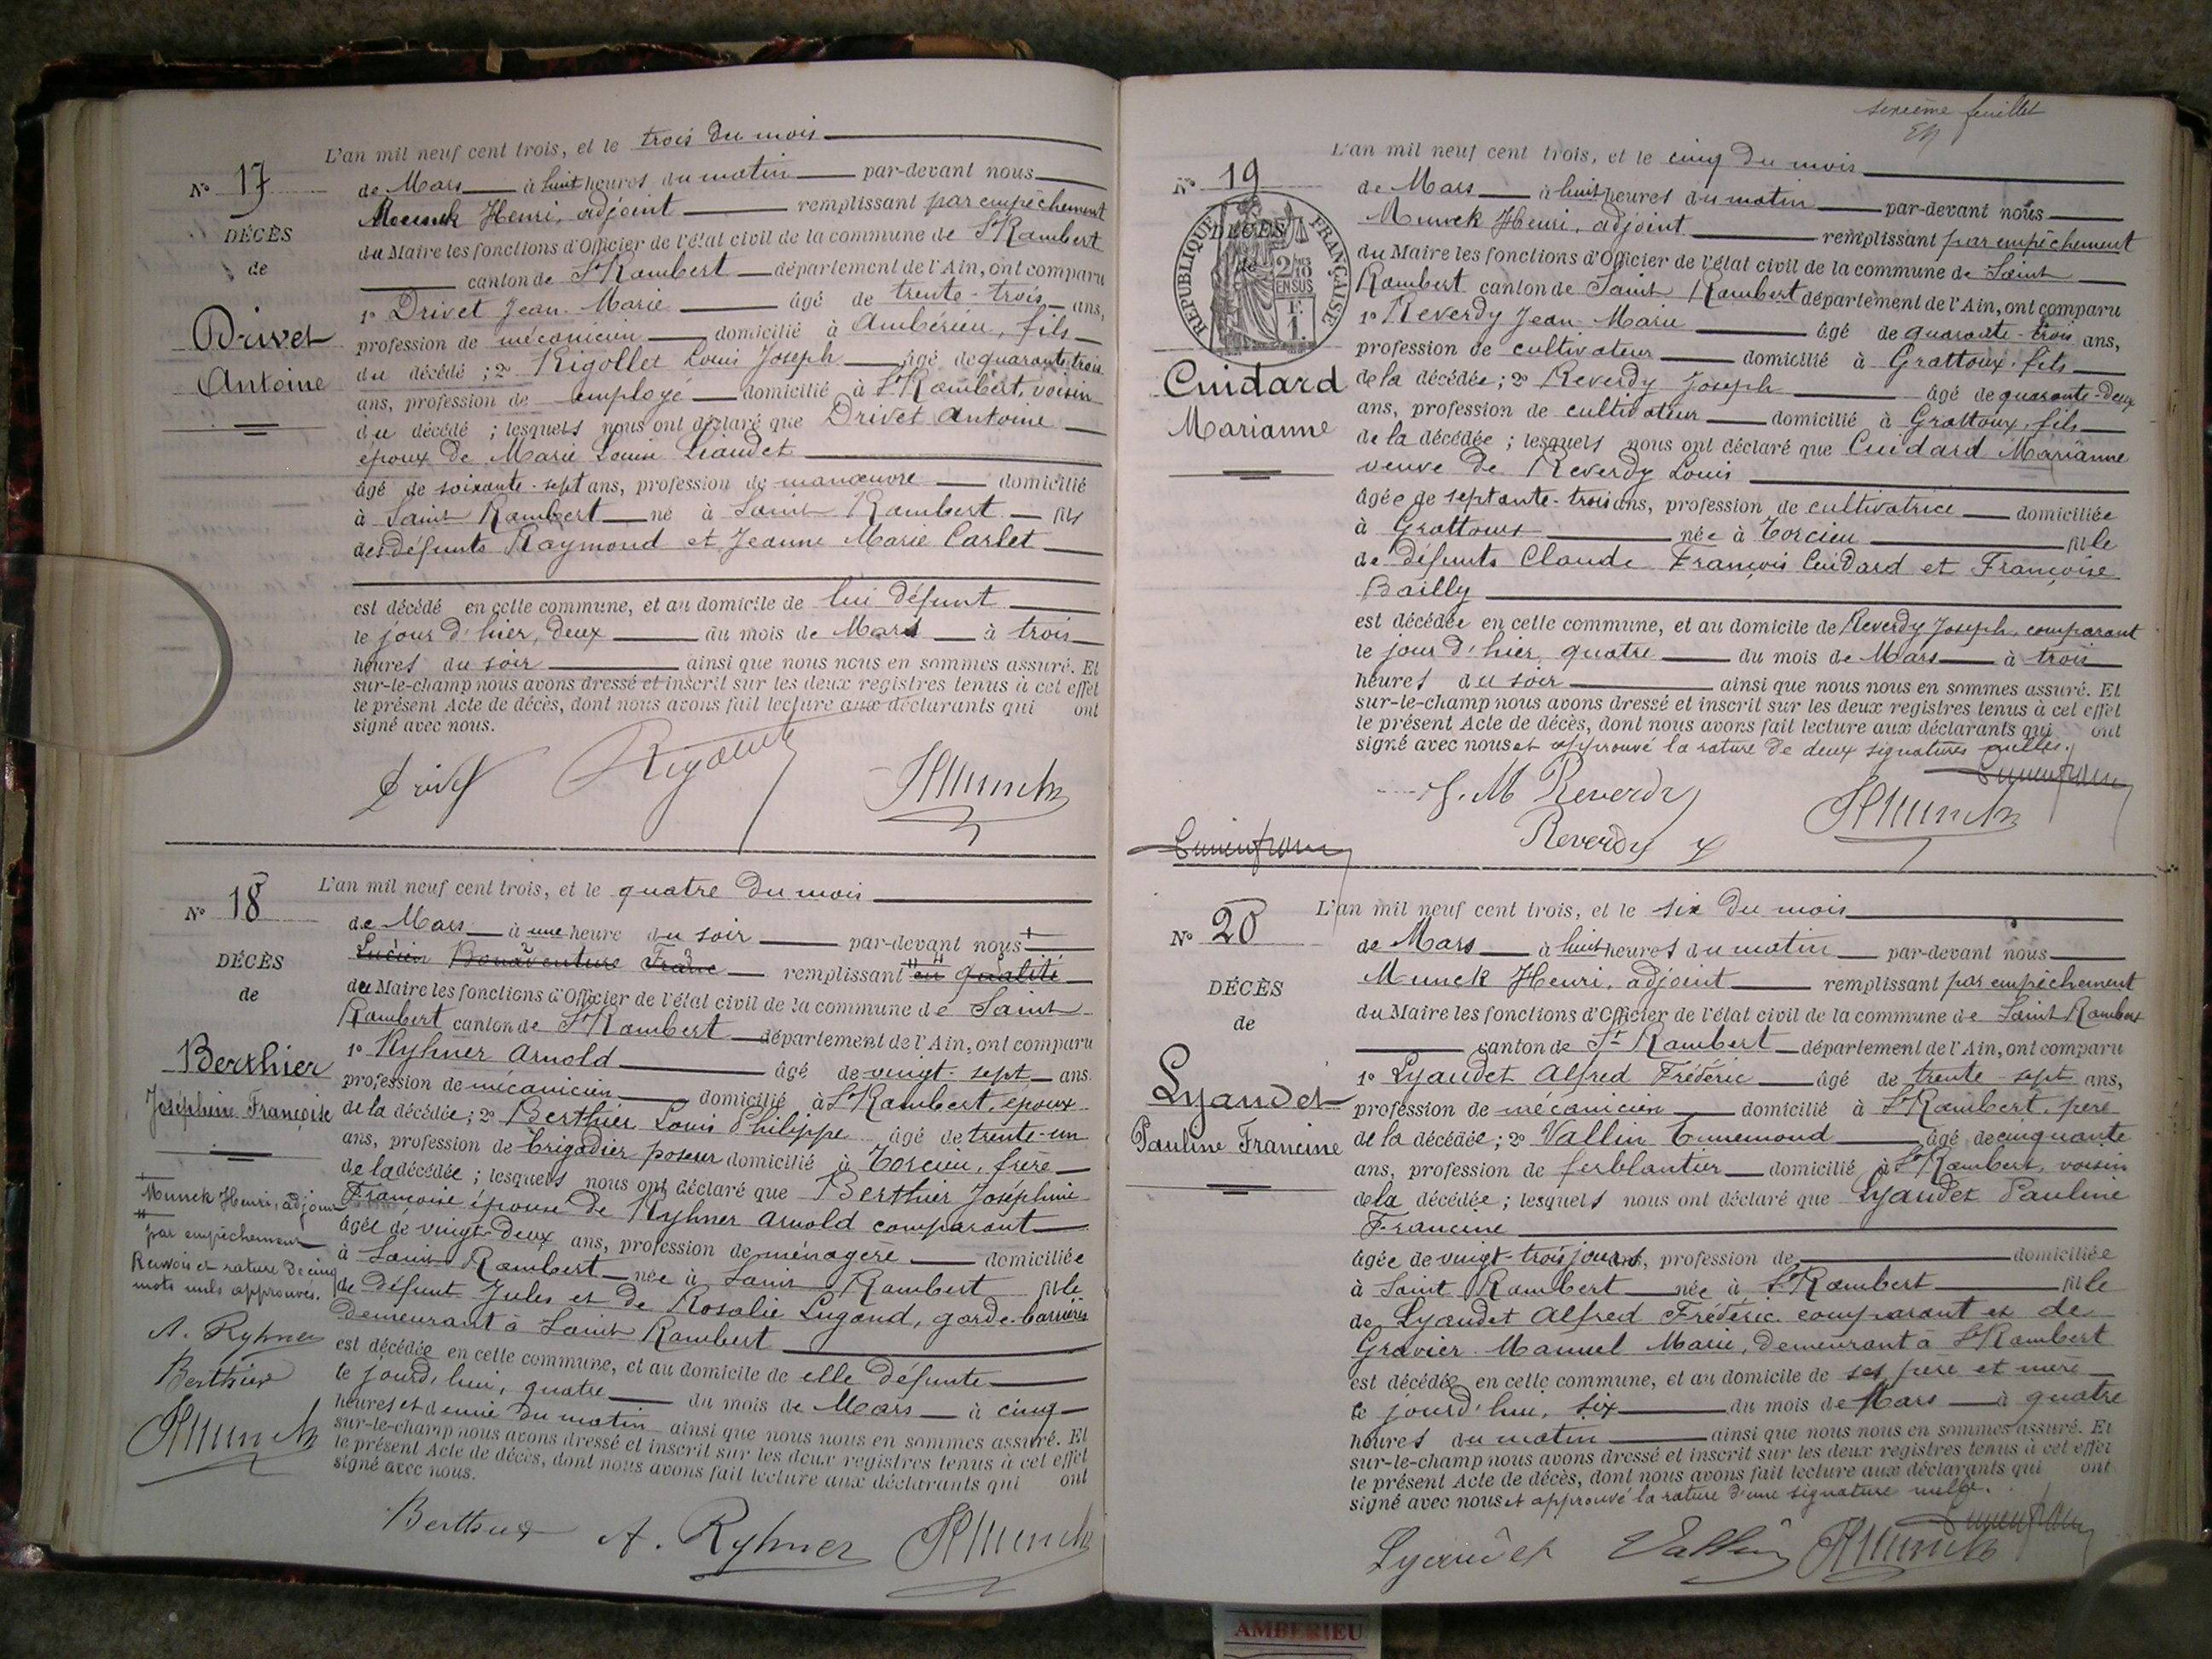 L'an mil neuf cent trois, et le trois du mois
N° 17
de Mars à huit heures du matin par-devant nous
Munck Henri, adjoint remplissant par empêchement
DÉCÈS
du Maire les fonctions d'Officier de l'état civil de la commune de St Rambert
de
canton de St Rambert département de l'Ain, ont comparu
1° Drivet Jean-Marie âgé de trente-trois ans,
Drivet
profession de mécanicien domicilié à Ambérieu, fils
Antoine
du décédé ; 2° Rigollet Louis Joseph âgé de quarante-trois
ans, profession de employé domicilié à St Rambert, voisin
du décédé ; lesquels nous ont déclaré que Drivet Antoine
époux de Marie Louise Liaudet
âgé de soixante-sept ans, profession de manœuvre domicilié
à Saint Rambert né à Saint Rambert fils
des défunts Raymond et Jeanne Marie Carlet
est décédé en cette commune, et au domicile de lui défunt
le jour d'hier, deux du mois de Mars à trois
heures du soir ainsi que nous nous en sommes assuré. Et
sur-le-champ nous avons dressé et inscrit sur les deux registres tenus à cet effet
le présent Acte de décès, dont nous avons fait lecture aux déclarants qui ont
signé avec nous.
Drivet HMunck
L'an mil neuf cent trois, et le quatre du mois
N° 18
de Mars à une heure du soir par-devant nous
Lucien Bonaventure Franc remplissant en qualité
DÉCÈS
du Maire les fonctions d'Officier de l'état civil de la commune de Saint
de
Rambert canton de St Rambert département de l'Ain, ont comparu
1° Ryhner Arnold âgé de vingt-sept ans.
Berthier
profession de mécanicien domicilié à St Rambert, époux
Joséphine Françoise
de la décédée ; 2° Berthier Louis Philippe âgé de trente-un
ans, profession de brigadier poseur domicilié à Torcieu, frère
de la décédée ; lesquels nous ont déclaré que Berthier Joséphine
Françoise épouse de Ryhner Arnold comparant
âgée de vingt-deux ans, profession de ménagère domiciliée
à Saint Rambert née à Saint Rambert fille
de défunt Jules et de Rosalie Lugand, garde-barrière
demeurant à Saint Rambert
est décédée en cette commune, et au domicile de elle défunte
le jourd'hui, quatre du mois de Mars à cinq
heures et demie du matin ainsi que nous nous en sommes assuré. Et
sur-le-champ nous avons dressé et inscrit sur les deux registres tenus à cet effet
le présent Acte de décès, dont nous avons fait lecture aux déclarants qui ont
signé avec nous.
Munck Henri, adjoint
par empêchement
Renvois et rature de cinq
mots nuls approuvés.
A. Ryhner
Berthier
HMunck
Berthier A. Ryhner HMunck
seixième feuillet
L'an mil neuf cent trois, et le cinq du mois
N° 19
de Mars à huit heures du matin par-devant nous
Munck Henri, adjoint remplissant par empêchement
RÉPUBLIQUE FRANÇAISE
2/10 EN SUS
1 F.
DÉCÈS
de
du Maire les fonctions d'Officier de l'état civil de la commune de Saint
Rambert canton de Saint Rambert département de l'Ain, ont comparu
1° Reverdy Jean-Marie âgé de quarante-trois ans,
profession de cultivateur domicilié à Grattoux, fils
Cuidard
de la décédée ; 2° Reverdy Joseph âgé de quarante-deux
Marianne
ans, profession de cultivateur domicilié à Grattoux, fils
de la décédée ; lesquels nous ont déclaré que Cuidard Marianne
veuve de Reverdy Louis
âgée de septante-trois ans, profession de cultivatrice domiciliée
à Grattoux née à Torcieu fille
de défunts Claude François Cuidard et Françoise
Bailly
est décédée en cette commune, et au domicile de Reverdy Joseph, comparant
le jour d'hier, quatre du mois de Mars à trois
heures du soir ainsi que nous nous en sommes assuré. Et
sur-le-champ nous avons dressé et inscrit sur les deux registres tenus à cet effet
le présent Acte de décès, dont nous avons fait lecture aux déclarants qui ont
signé avec nous et approuvé la rature de deux signatures nulles.
J. M Reverdy HMunck
Reverdy J
L'an mil neuf cent trois, et le six du mois
N° 20
de Mars à huit heures du matin par-devant nous
Munck Henri, adjoint remplissant par empêchement
DÉCÈS
du Maire les fonctions d'Officier de l'état civil de la commune de Saint Rambert
de
canton de St Rambert département de l'Ain, ont comparu
1° Lyaudet Alfred Frédéric âgé de trente-sept ans,
Lyaudet
profession de mécanicien domicilié à St Rambert, père
Pauline Francine
de la décédée ; 2° Vallin Ennemond âgé de cinquante
ans, profession de ferblantier domicilié à St Rambert, voisin
de la décédée ; lesquels nous ont déclaré que Lyaudet Pauline
Francine
âgée de vingt-trois jours, profession de domiciliée
à Saint Rambert née à St Rambert fille
de Lyaudet Alfred Frédéric comparant et de
Gravier Manuel Marie, demeurant à St Rambert
est décédée en cette commune, et au domicile de ses père et mère
le jourd'hui, six du mois de Mars à quatre
heures du matin ainsi que nous nous en sommes assuré. Et
sur-le-champ nous avons dressé et inscrit sur les deux registres tenus à cet effet
le présent Acte de décès, dont nous avons fait lecture aux déclarants qui ont
signé avec nous et approuvé la rature d'une signature nulle.
Lyaudet Vallin HMunck
AMBERIEU